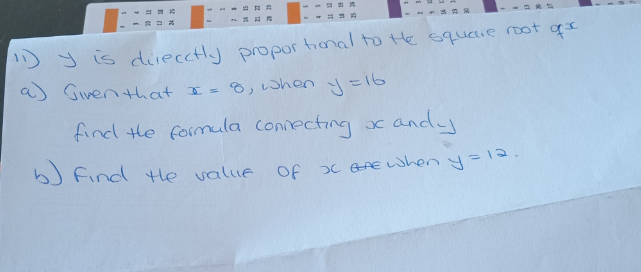 11) y is directly proportional to the square root of x
a) Given that x = 8, when y = 16
find the formula connecting x and y
b) Find the value of x when y = 12.